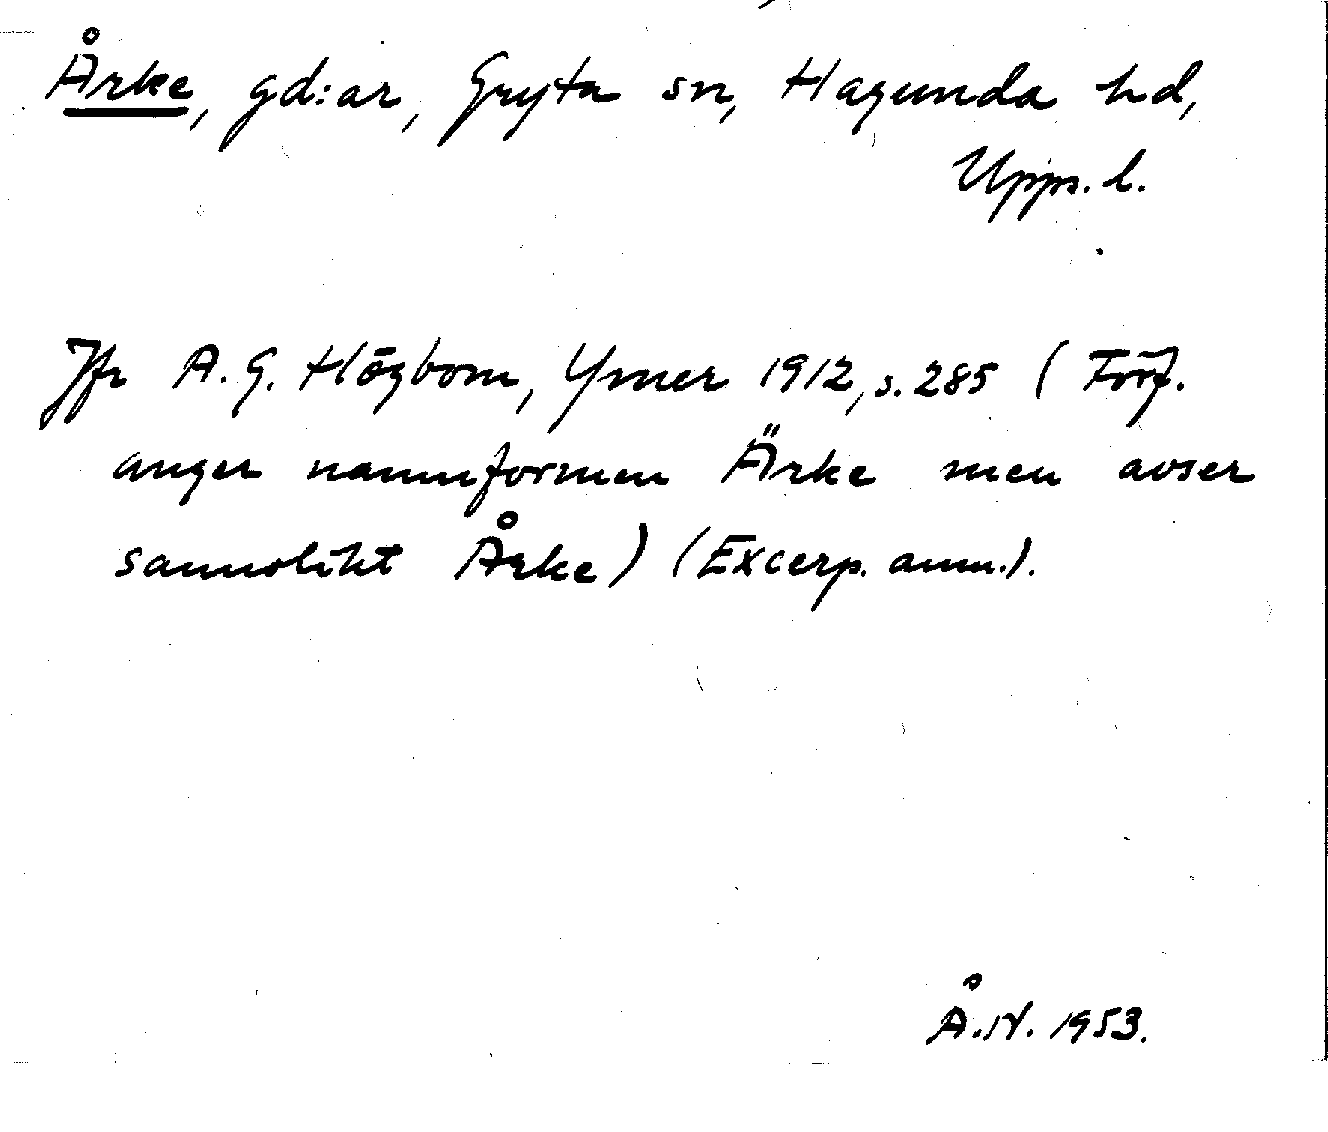 Årke, gd:ar, Gryta sn, Hagunda hd,
Upps. l.
Jfr A. G. Högbom, Ymer 1912, s. 285 (Förf.
anger namnformen Ärke men avser
sannolikt Årke) (Excerp. anm.).
Å. N. 1953.